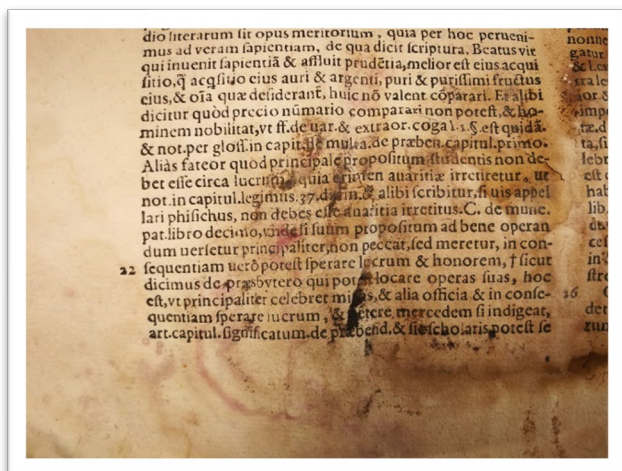 dio literarum sit opus meritorium, quia per hoc perueni-
mus ad veram sapientiam, de qua dicit scriptura, Beatus vir
qui inuenit sapientiā & affluit prudētia, melior est eius acqui
sitio, q̄ acqsitio eius auri & argenti, puri & purissimi fructus
eius, & oīa quæ desiderant, huic nō valent cōparari. Et alibi
dicitur quòd precio nūmario comparari non potest, & ho-
minem nobilitat, vt ff. de uar. & extraor. cog. l. 1. §. est quidā.
& not. per gloss. in capit. de multa. de præben. capitul. primo.
Aliàs fateor quòd principale propositum studentis non de-
bet esse circa lucrum, quia crimen auaritiæ irretiretur, ut
not. in capitul. legimus. 37. distin. & alibi scribitur, si uis appel
lari phisichus, non debes esse auaritia irretitus. C. de
pat. libro decimo, vnde si suum propositum ad bene operan
dum uersetur principaliter, non peccat, sed meretur, in con-
22 sequentiam uerò potest sperare lucrum & honorem, † sicut
dicimus de præsbytero qui potest locare operas suas, hoc
est, vt principaliter celebret missas, & alia officia & in conse-
quentiam sperare lucrum, & petere mercedem si indigeat,
art. capitul. significatum. de præbend. & sic scholaris potest se
nonne
26